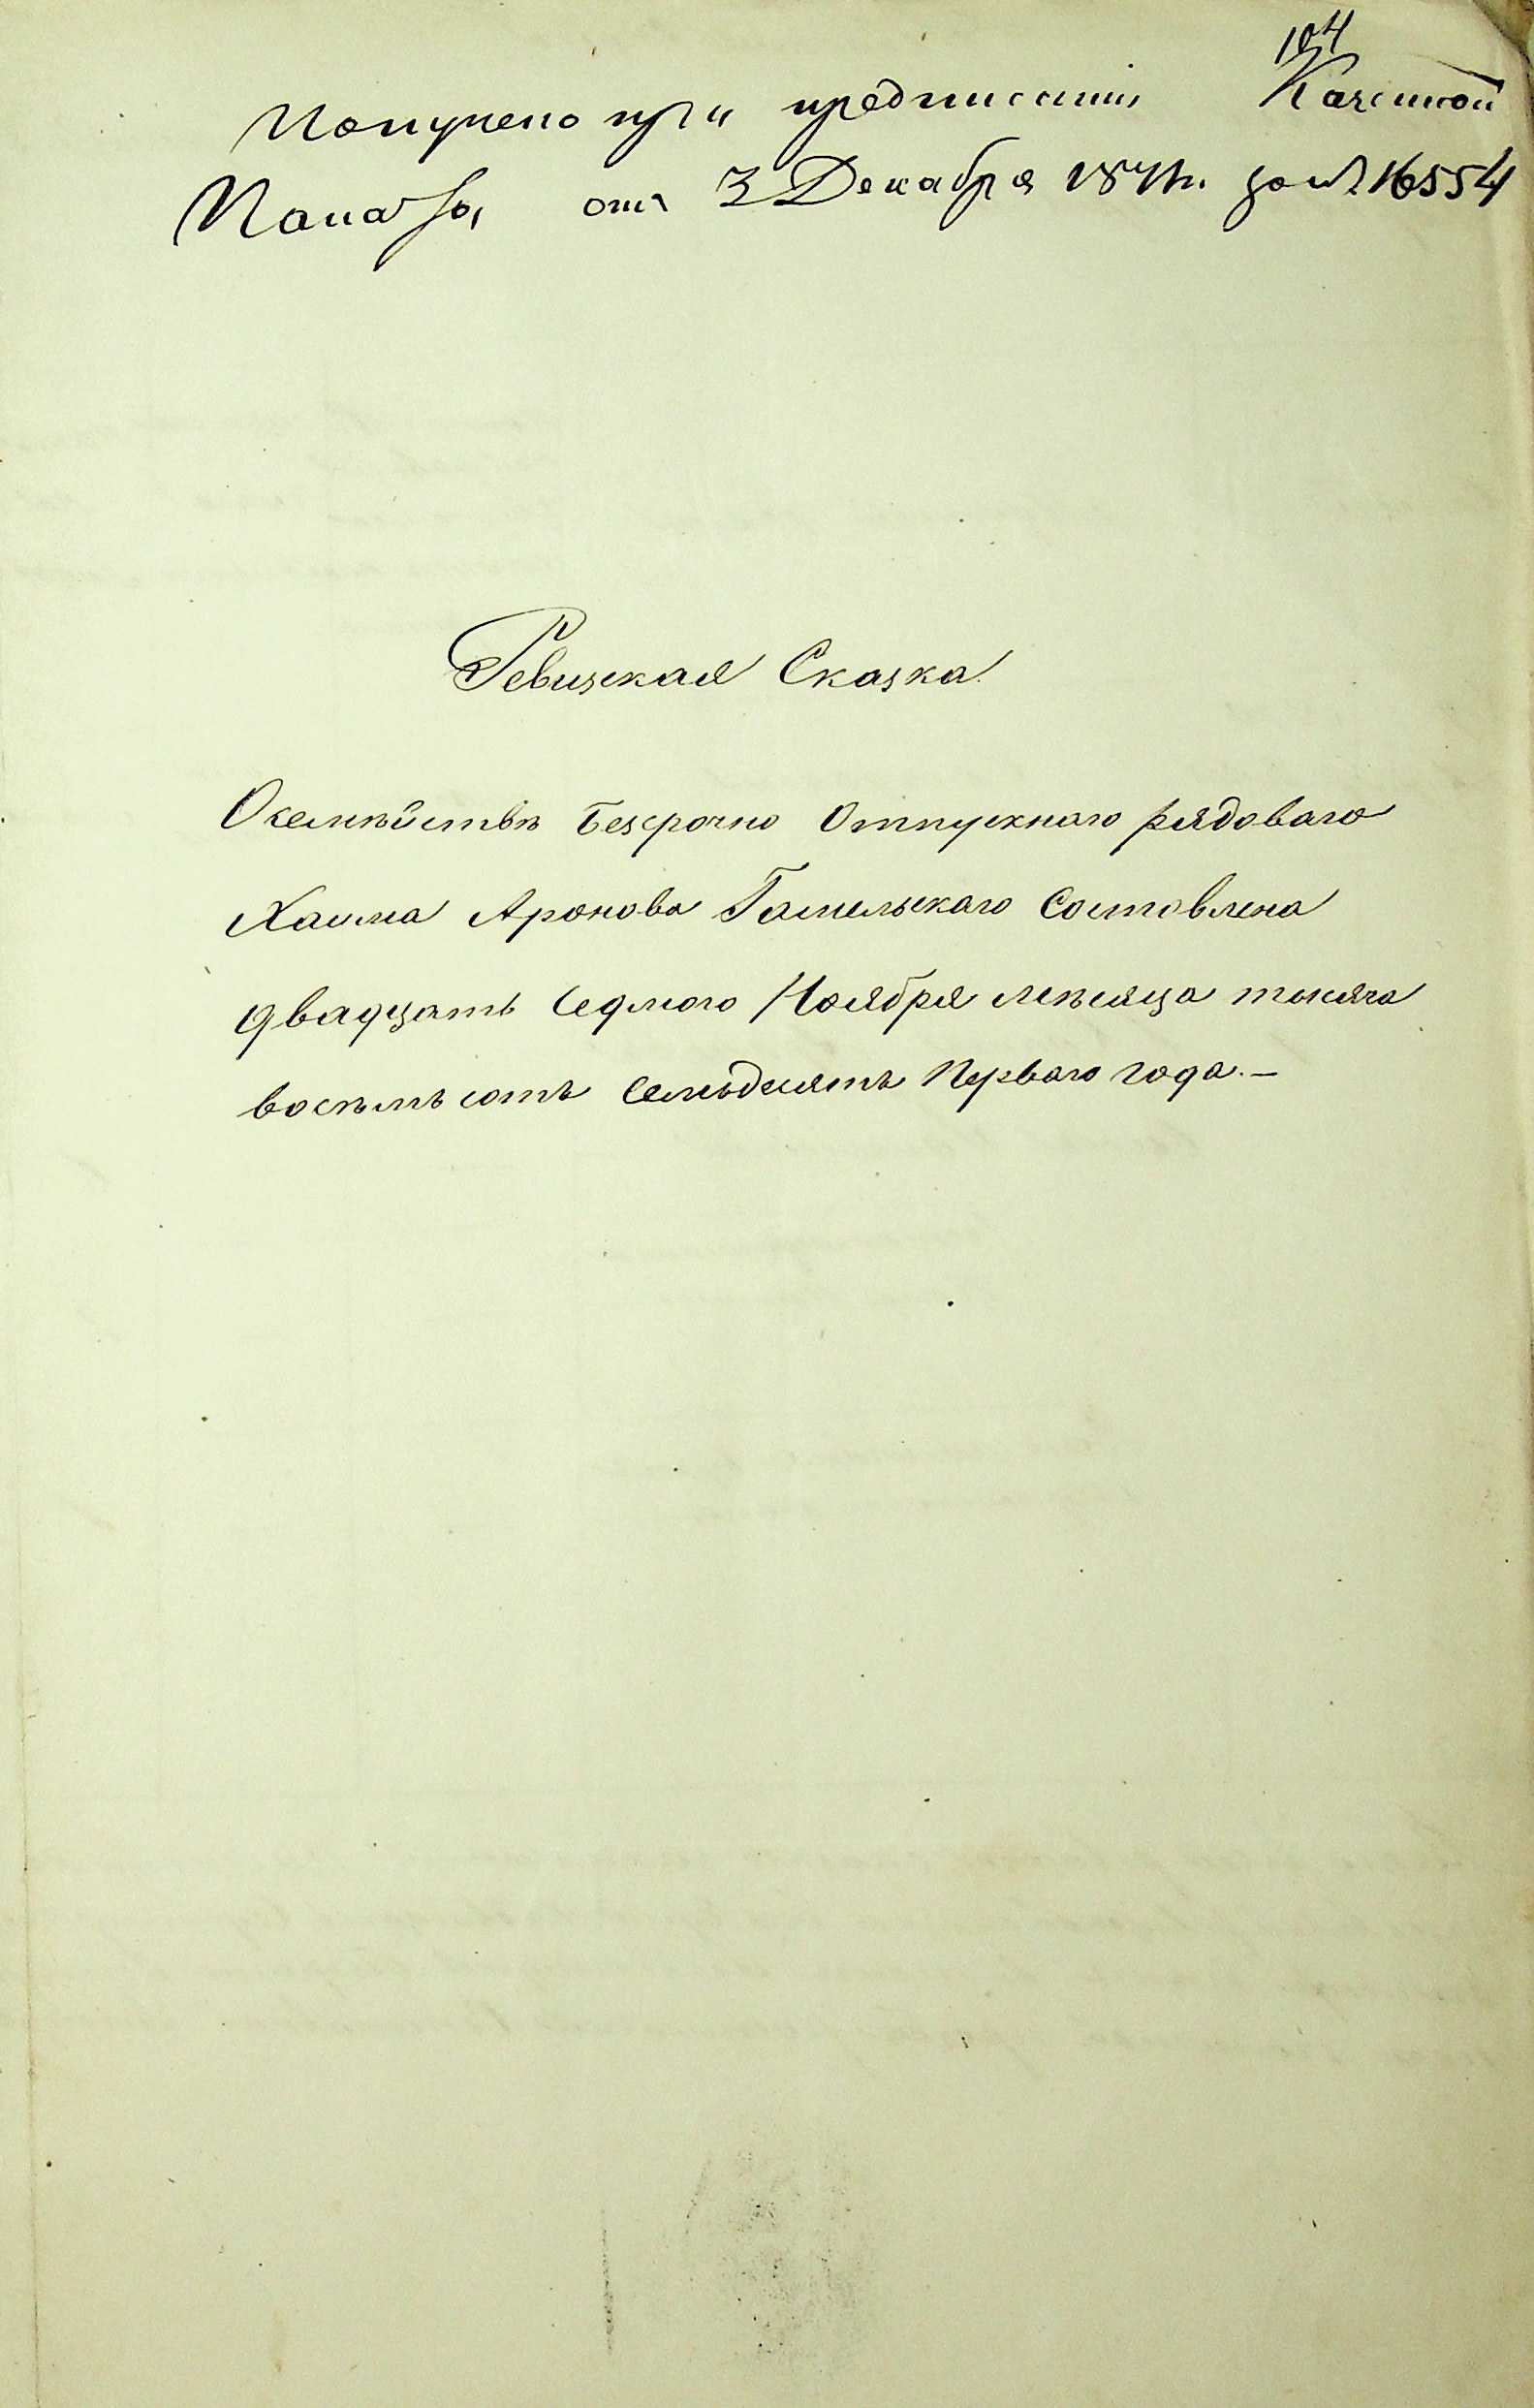 104
Получено при предписаніи Казенной
Палаты отъ 3 Декабря 1871 г. за № 16554
Ревизская Сказка
О семействѣ безсрочно отпускнаго рядоваго
Хаима Аронова Гомельскаго Составлена
двадцать Седмого Ноября мѣсяца тысяча
восѣмъ сотъ Семьдесятъ Перваго года.—